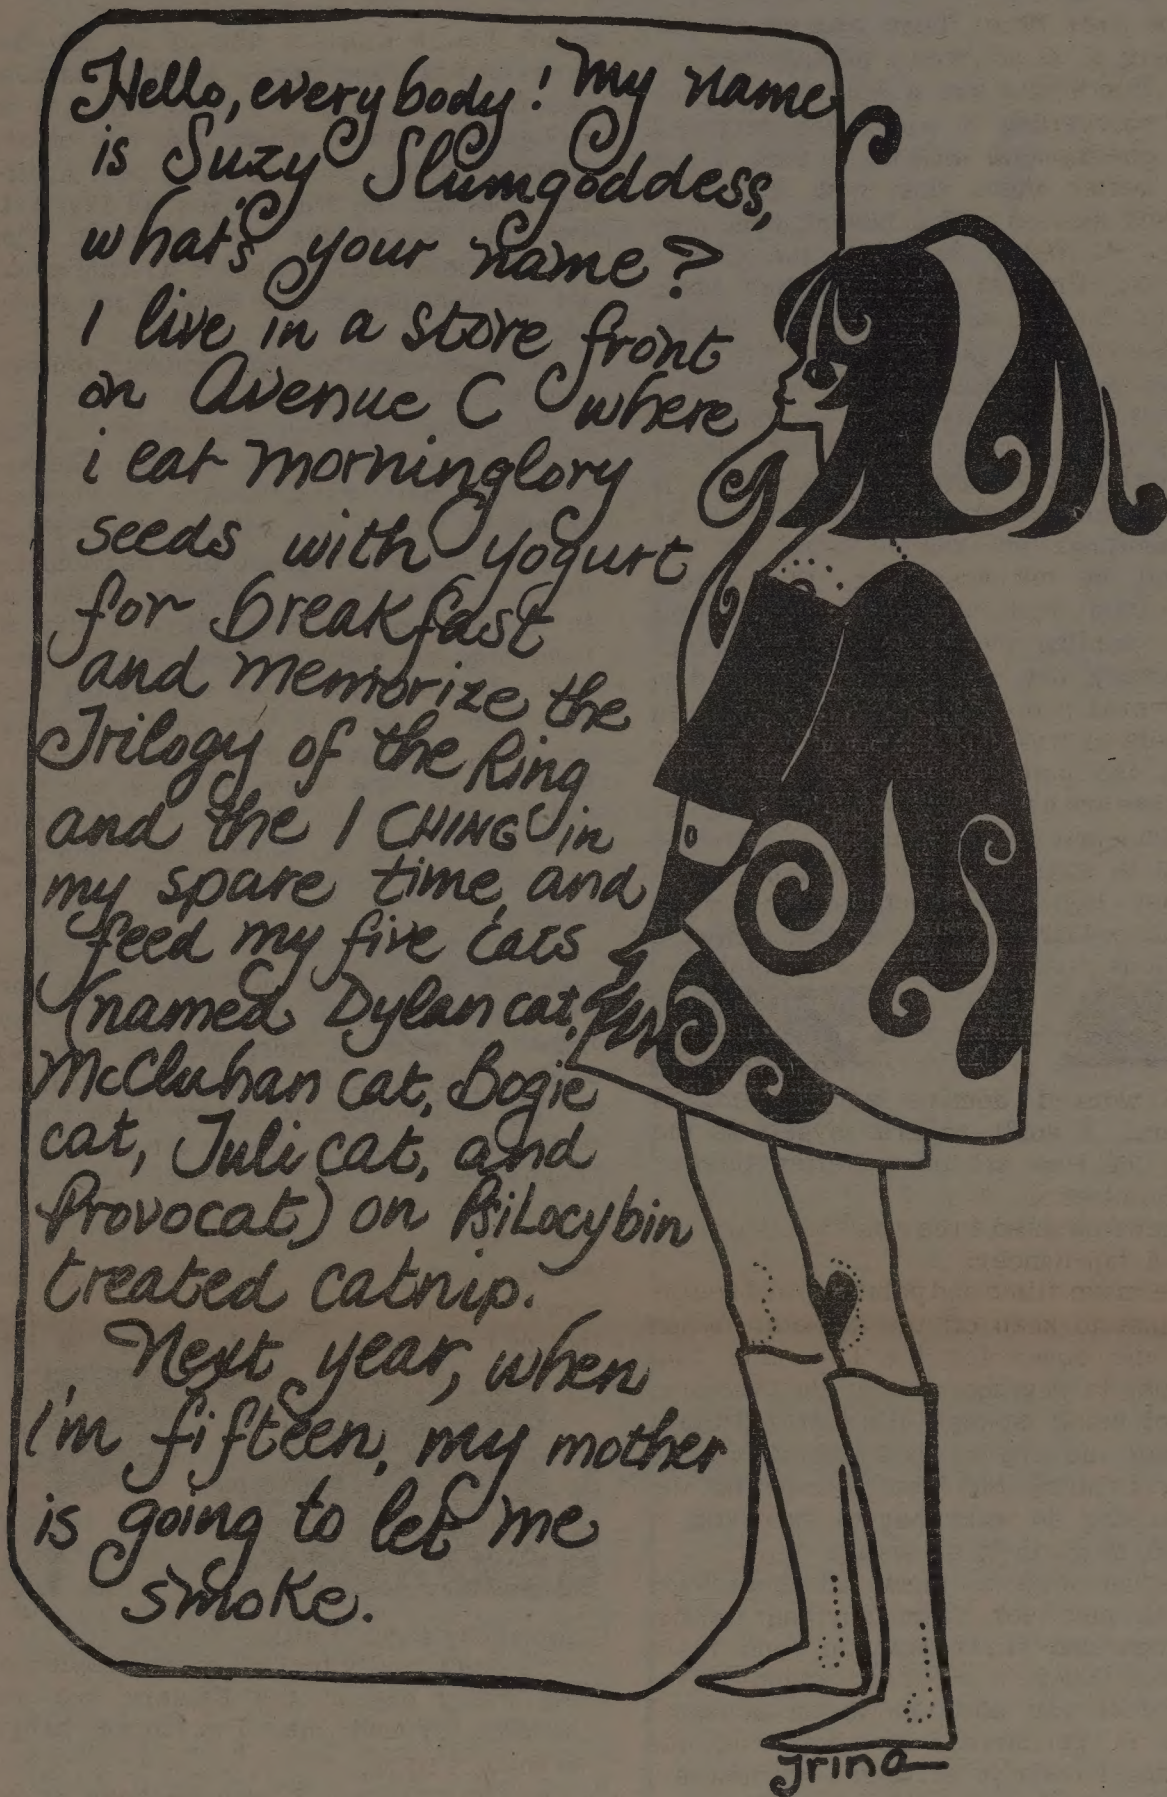 Hello, everybody! My name
is Suzy Slumgoddess,
what's your name?
I live in a store front
on Avenue C where
i eat morninglory
seeds with yogurt
for breakfast
and memorize the
Trilogy of the Ring
and the I CHING in
my spare time, and
feed my five cats
(named Dylan cat,
McCluhan cat, Bogie
cat, Juli cat, and
Provocat) on PsiLocybin
treated catnip.
Next year, when
I'm fifteen, my mother
is going to let me
smoke.
Irina